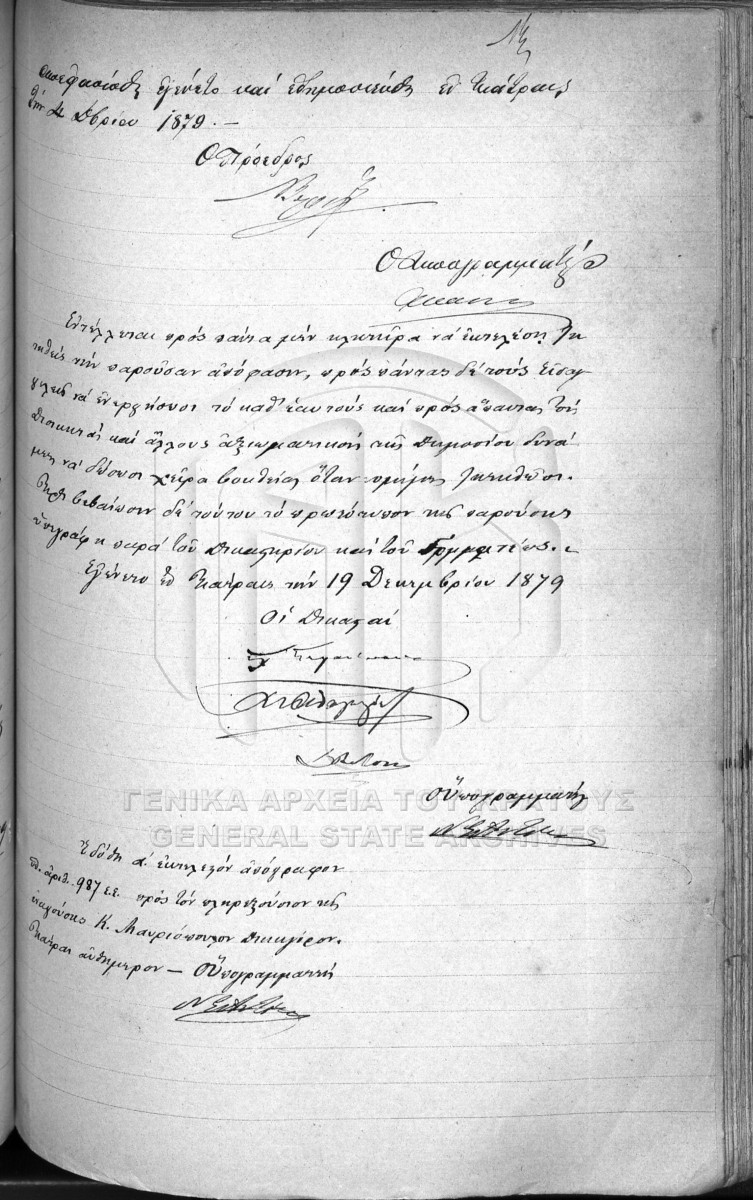 απεφασίσθη εγένετο και εδημοσιεύθη εν Πάτραις
4 Δβρίου 1879.—
Ο Πρόεδρος
Ο Υπογραμματεύς
Εντέλλεται προς πάντα μεν κλητήρα να εκτελέση
την παρούσαν απόφασιν, προς πάντας δε τους Εισαγ
γελείς να ενεργήσωσι το καθ' εαυτούς και προς άπαντας τους
Διοικητάς και άλλους αξιωματικούς της δημοσίου δυνά
μεως να δώσωσι χείρα βοηθείας όταν νομίμως ζητηθώσι.
βεβαίωσιν δε τούτου το πρωτότυπον της παρούσης
υπεγράφη παρά του Δικαστηρίου και του Γραμματέως.
Εγένετο εν Πάτραις την 19 Δεκεμβρίου 1879
Οι Δικασταί
ΓΕΝΙΚΑ ΑΡΧΕΙΑ ΤΟΥ ΚΡΑΤΟΥΣ
Ο Υπογραμματεύς
GENERAL STATE ARCHIVES
Εδόθη α. εκτελεστόν απόγραφον
υπ. αριθ. 987 ε.ε. προς τον πληρεξούσιον της
εναγούσης Κ. Μαυριόπουλον δικηγόρον.
Πάτραι αυθημερόν — Ο Υπογραμματεύς